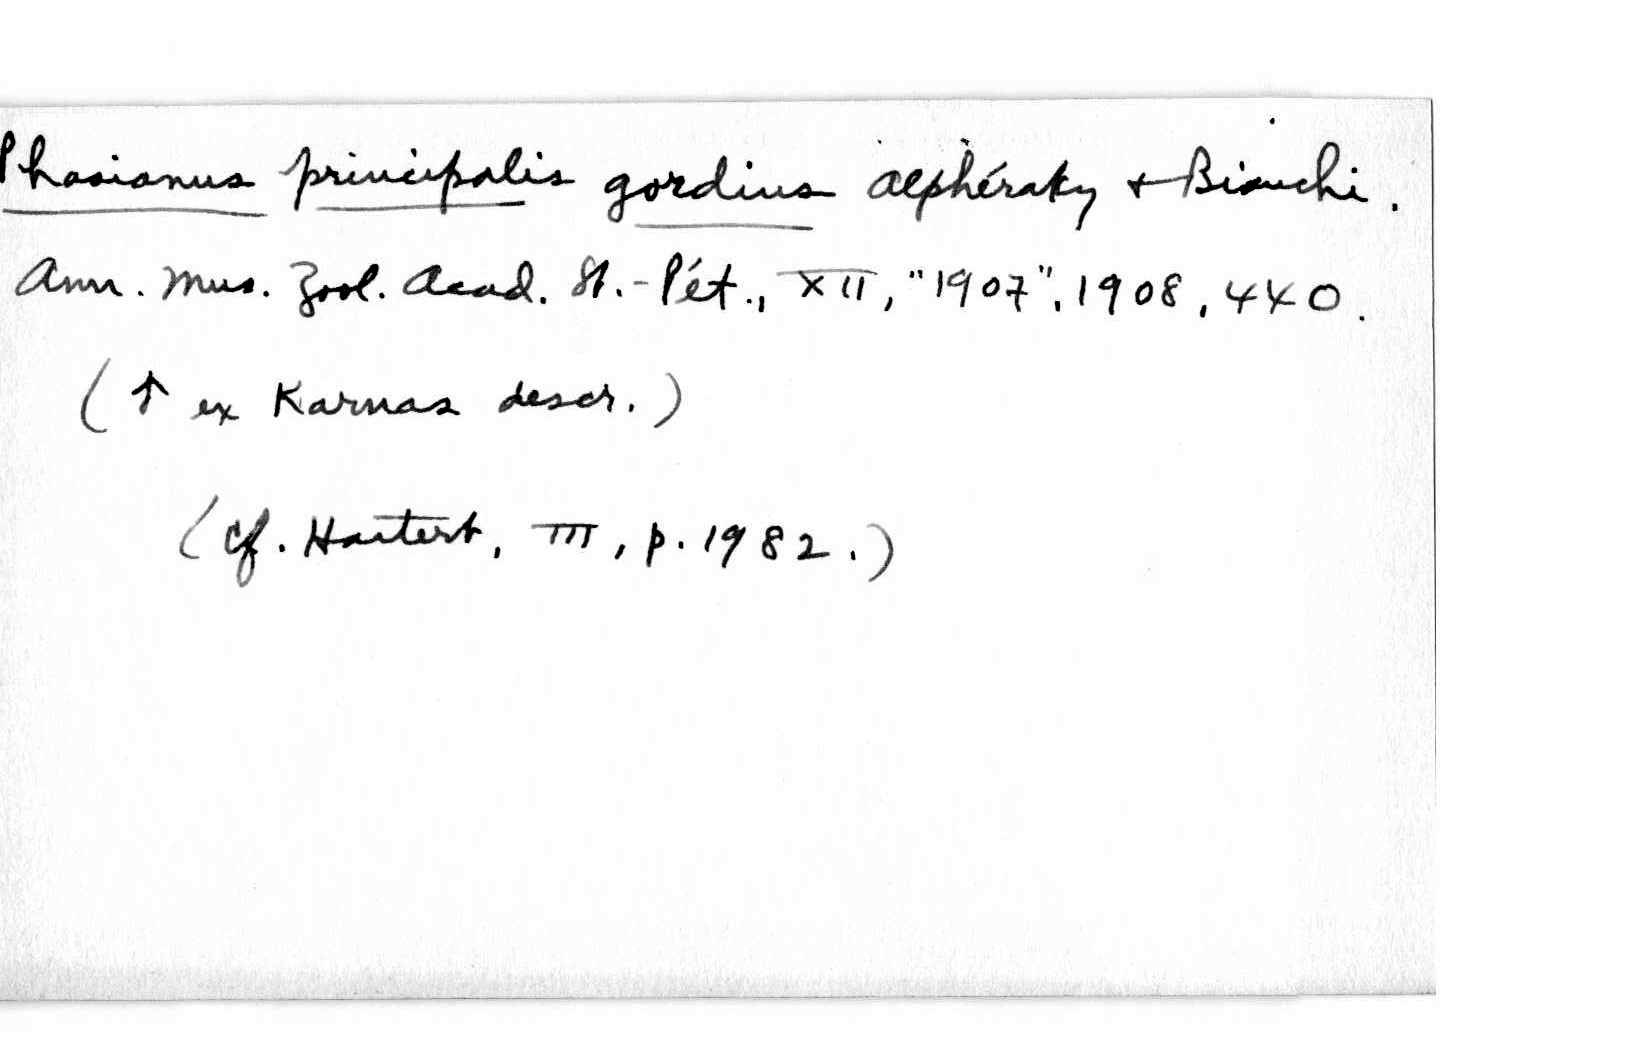 Phasianus principalis gordius Alphéraky + Bianchi.
Ann. Mus. Zool. Acad. St.-Pét., XII, "1907", 1908, 440.
(↑ ex Karnas descr.)
(cf. Hartert, III, p. 1982.)